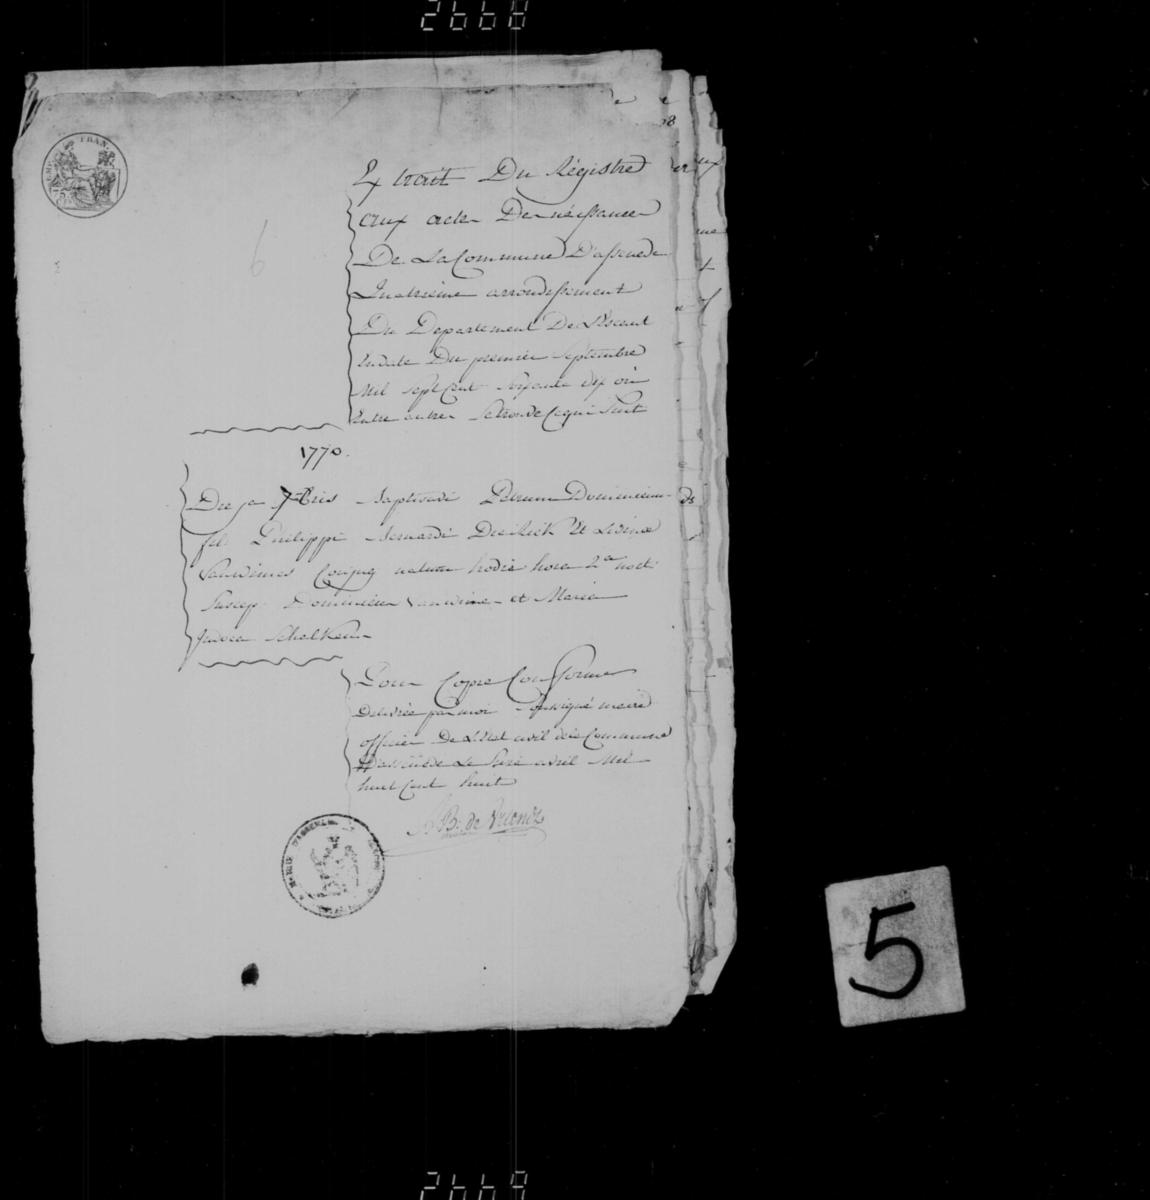 2668
Extrait Du Régistre
aux acte De néissance
De La Commune D'assenede
Quatrième arrondissement
Du Departement De L'Escaut
En date Du premier Septembre
Mil Sept Cent Soixante dix où
Entre autre Se trouve Cequi Suit
1770.
Die 1a 7bris Baptisavi Petrum Dominicum
fil: Philippi Bernardi Et Livinæ
Conjug natum hodie hora 2a noct:
Suscep: Dominicus et Maria
Judoca
Pour Copie Conforme
Delivrée par moi Soussigné maire
officier De L'Etat civil dela Commune
D'assenede Le avril Mil
huit Cent huit
6
5
2668